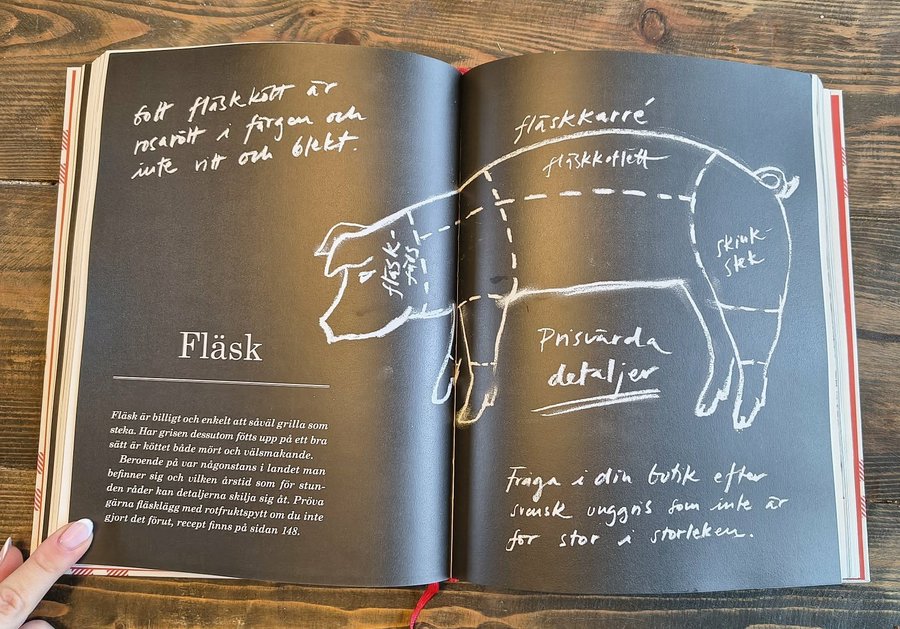 Gott fläskkött är
rosarött i färgen och
inte vitt och blekt.
Fläsk
Fläsk är billigt och enkelt att såväl grilla som
steka. Har grisen dessutom fötts upp på ett bra
sätt är köttet både mört och välsmakande.
Beroende på var någonstans i landet man
befinner sig och vilken årstid som för stun-
den råder kan detaljerna skilja sig åt. Pröva
gärna fläsklägg med rotfruktspytt om du inte
gjort det förut, recept finns på sidan 148.
fläsk-
färs
fläskkarré
fläskkotlett
skink-
stek
Prisvärda
detaljer
Fråga i din butik efter
svensk unggris som inte är
för stor i storleken.